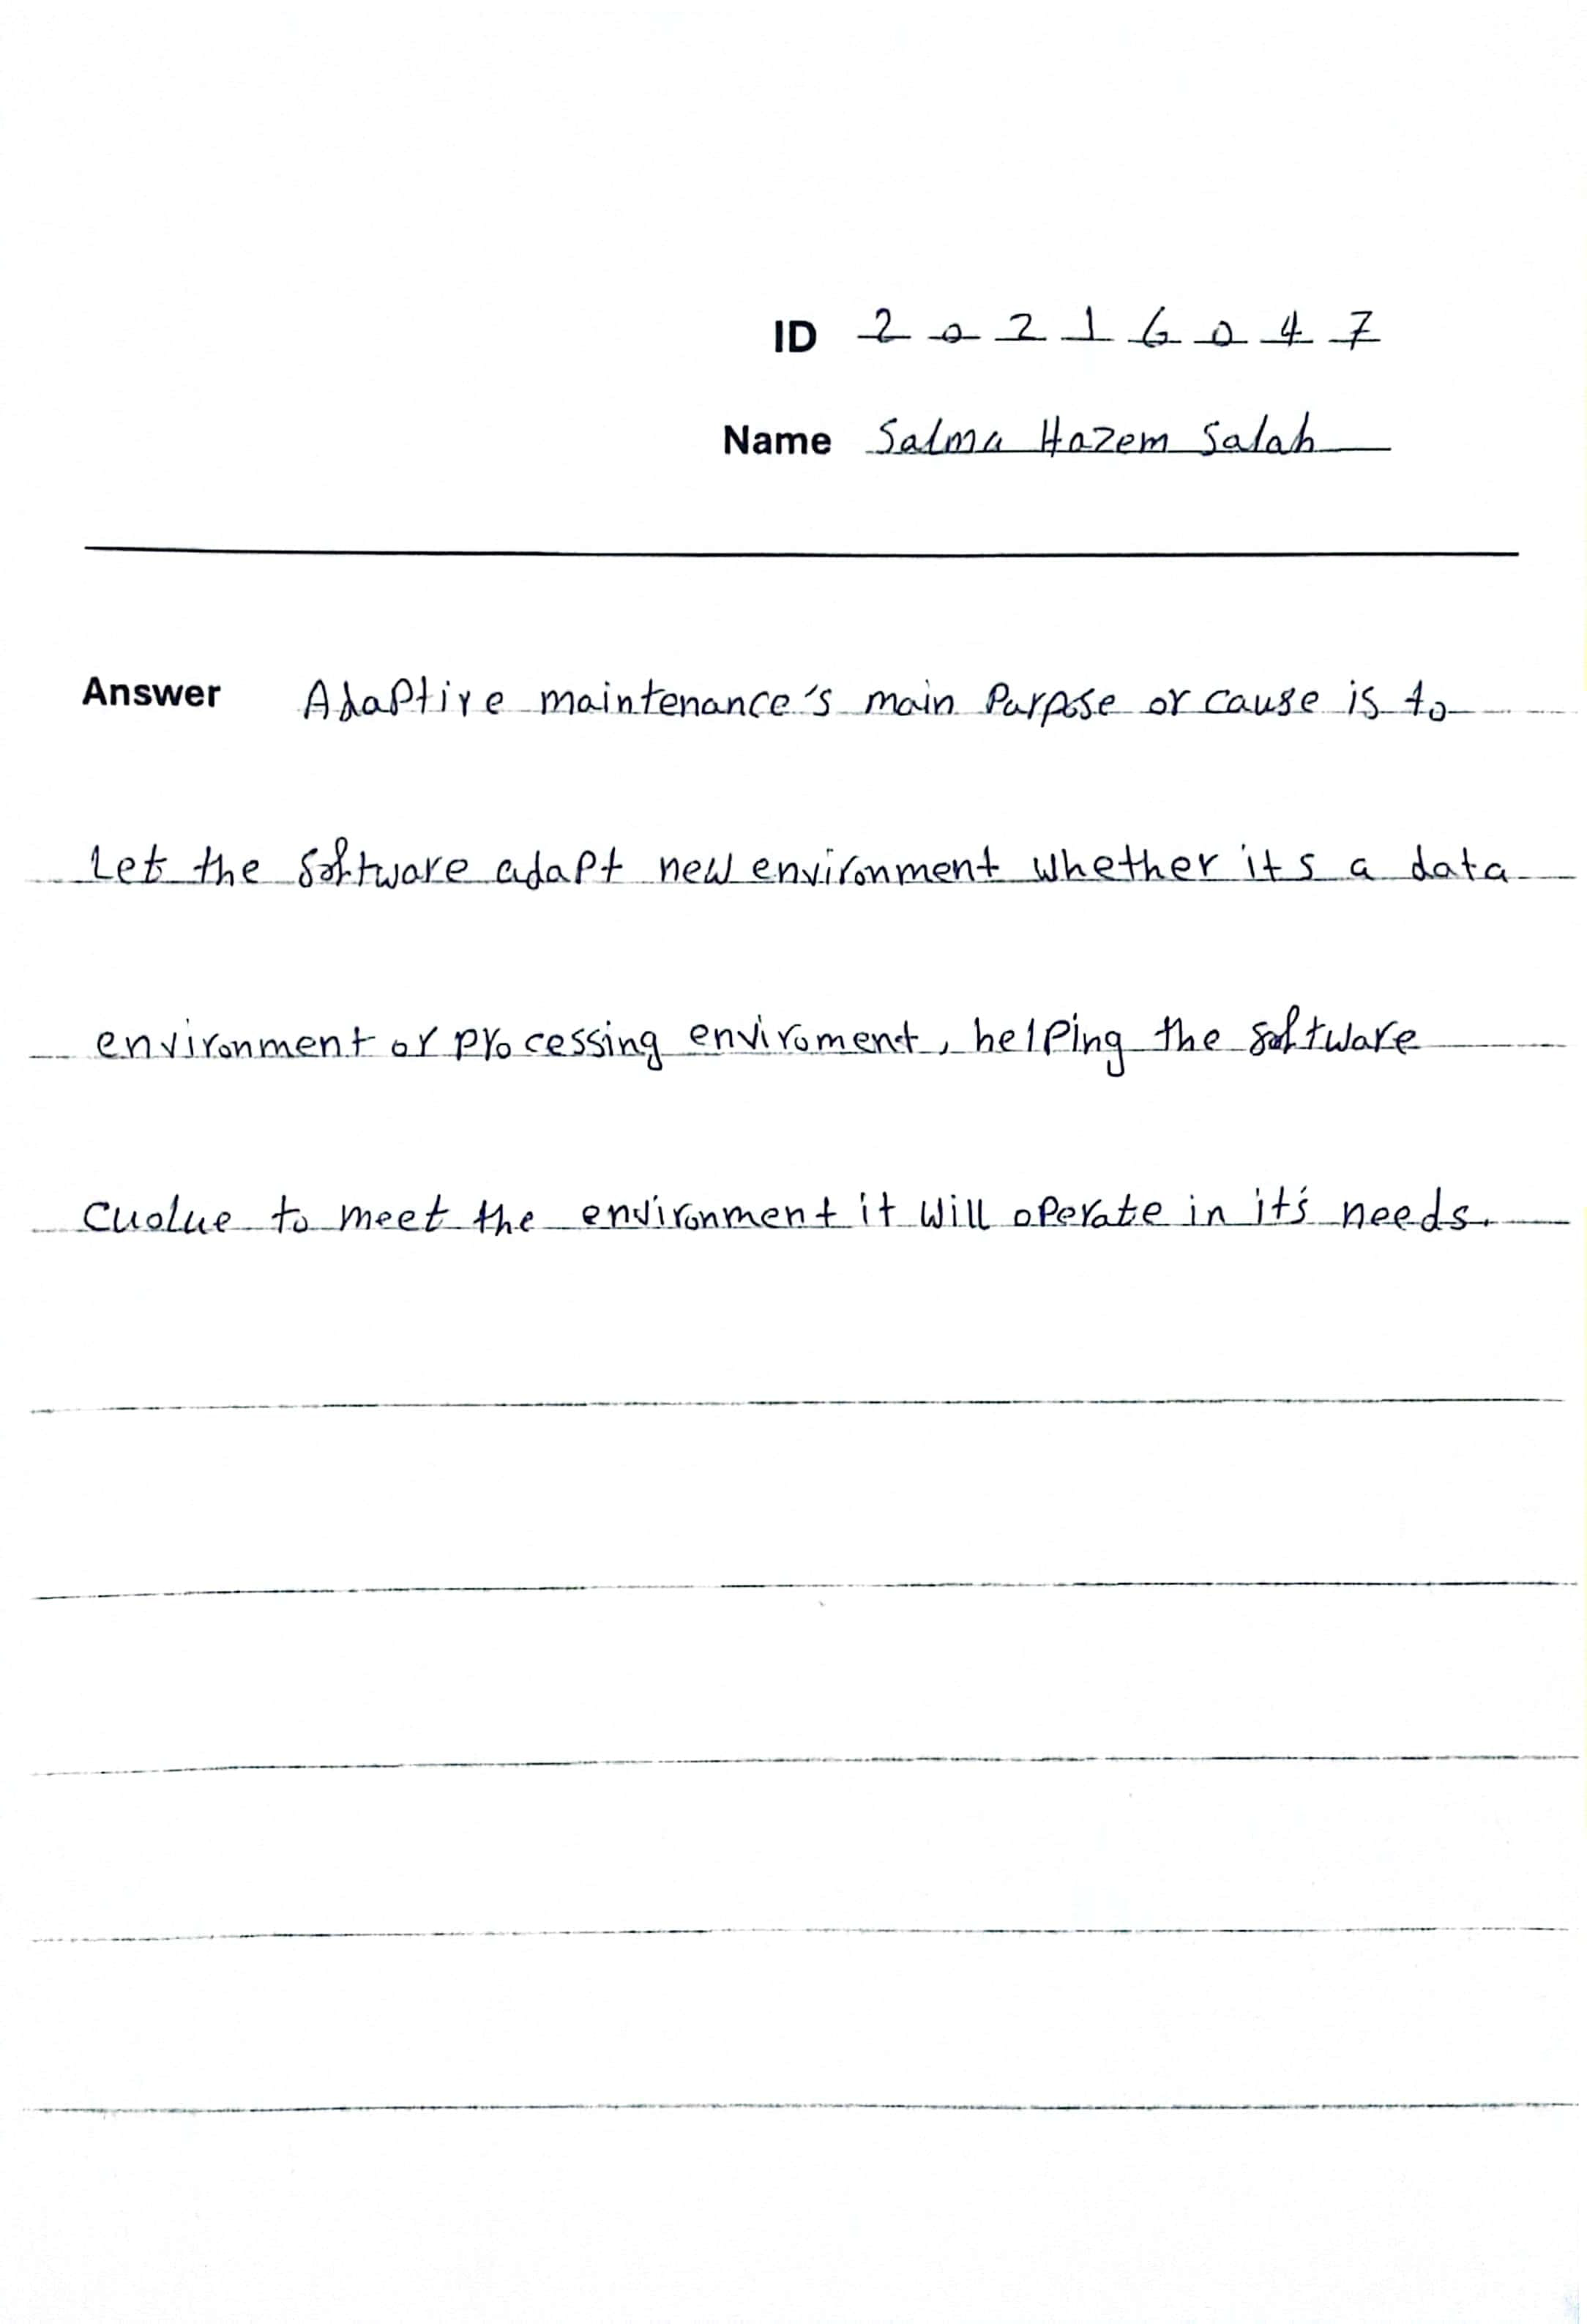 ID 2 0 2 1 6 0 4 7
Name Salma Hazem Salah
Answer Adaptive maintenance's main Purpose or cause is to
Let the software adapt new environment whether it's a data
environment or processing enviroment, helping the software
evolve to meet the environment it will operate in it's needs.